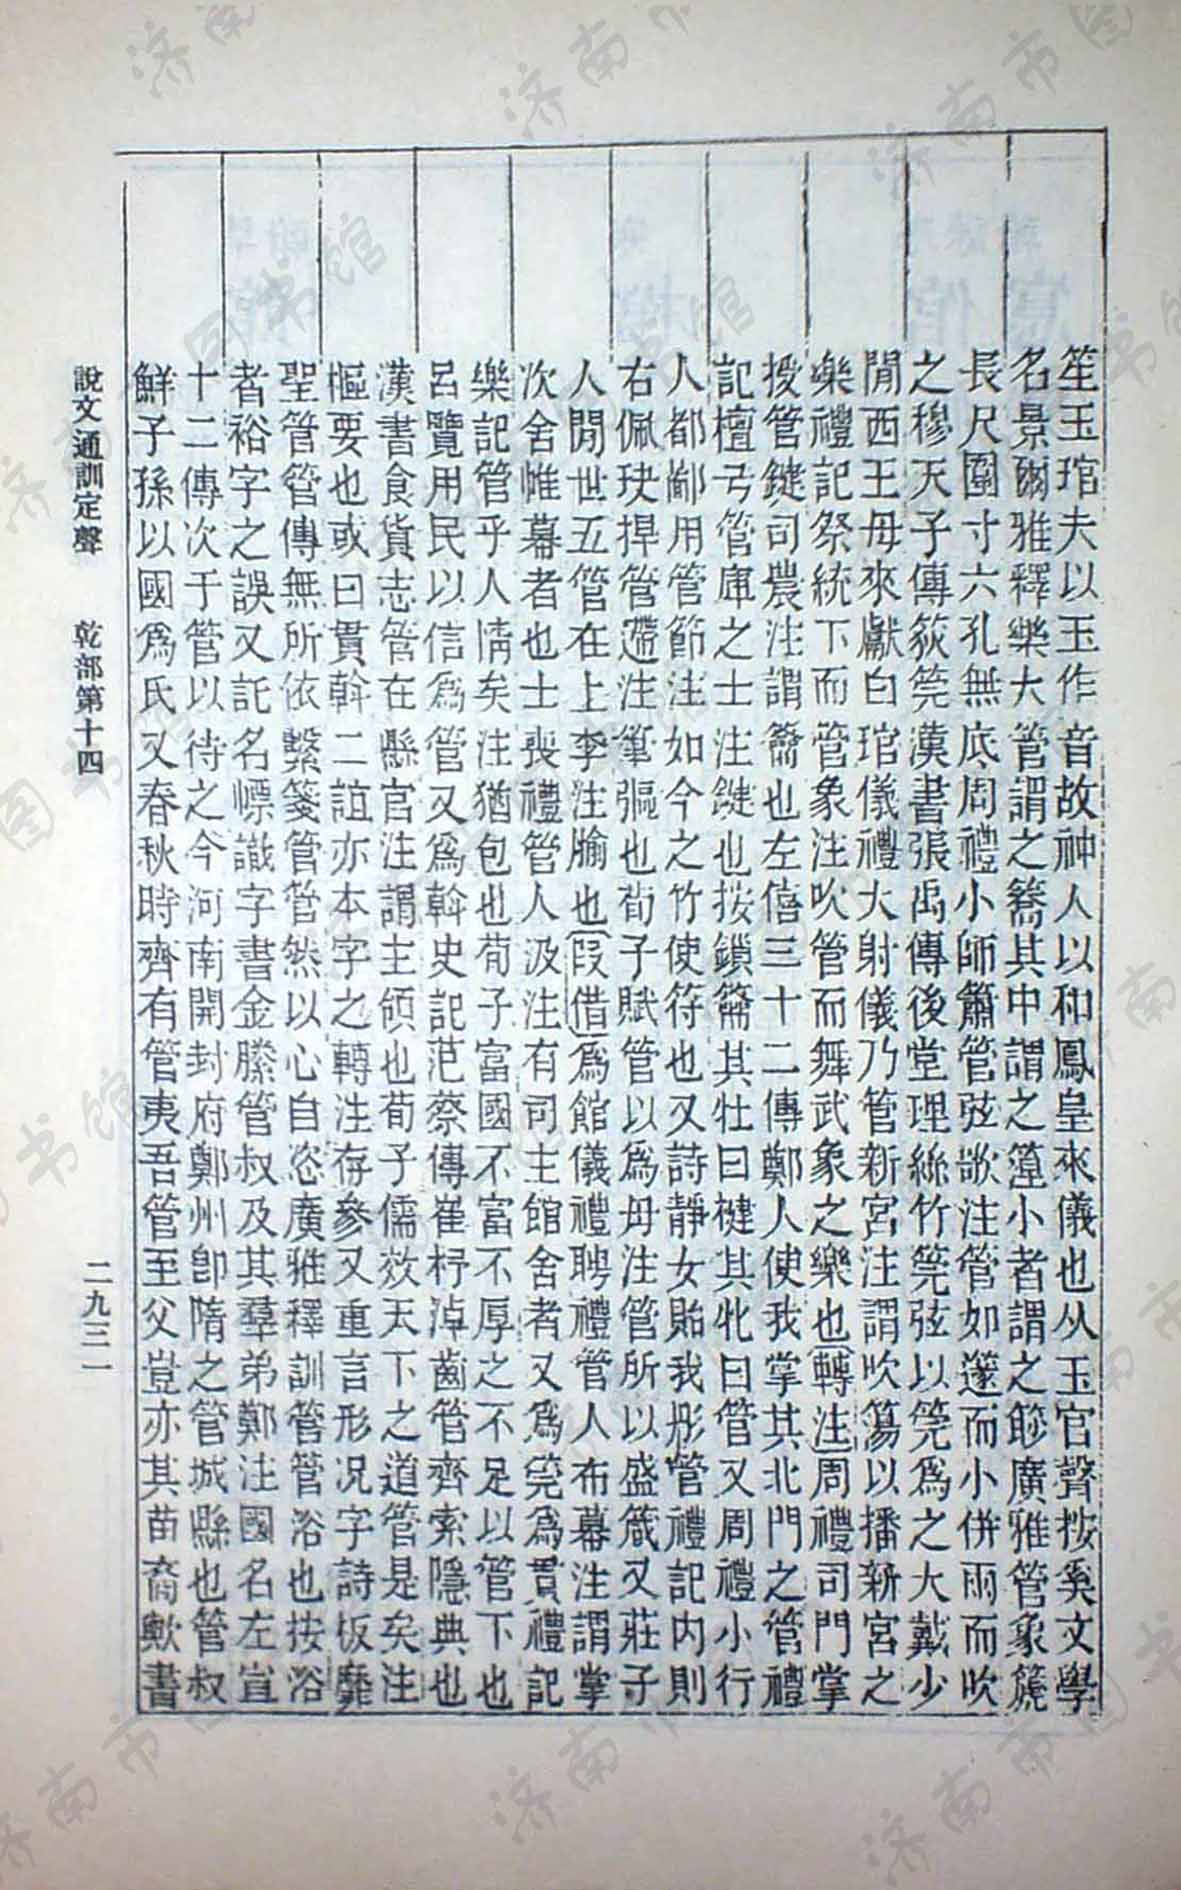 笙玉琯夫以玉作音故神人以和鳳皇來儀也从玉官聲按奚文學
名景爾雅釋樂大管謂之簥其中謂之篞小者謂之篎廣雅管象篪
長尺圍寸六孔無底周禮小師簫管弦歌注管如篴而小併兩而吹
之穆天子傳荻筦漢書張禹傳後堂理絲竹筦弦以筦爲之大戴少
閒西王母來獻白琯儀禮大射儀乃管新宮注謂吹簜以播新宮之
樂禮記祭統下而管象注吹管而舞武象之樂也轉注周禮司門掌
授管鍵司農注謂籥也左僖三十二傳鄭人使我掌其北門之管禮
記檀弓管庫之士注鍵也按鎖籥其牡曰楗其牝曰管又周禮小行
人都鄙用管節注如今之竹使符也又詩靜女貽我彤管禮記內則
右佩玦捍管遰注筆彄也荀子賦管以爲母注管所以盛箴又莊子
人閒世五管在上李注腧也叚借爲館儀禮聘禮管人布幕注謂掌
次舍帷幕者也士喪禮管人汲注有司主館舍者又爲筦爲貫禮記
樂記管乎人情矣注猶包也荀子富國不富不厚之不足以管下也
呂覽用民以信爲管又爲斡史記范蔡傳崔杼淖齒管齊索隱典也
漢書食貨志管在縣官注謂主領也荀子儒效天下之道管是矣注
樞要也或曰貫斡二誼亦本字之轉注存參又重言形況字詩板靡
聖管管傳無所依繫箋管管然以心自恣廣雅釋訓管管浴也按浴
者裕字之誤又託名幖識字書金縢管叔及其羣弟鄭注國名左宣
十二傳次于管以待之今河南開封府鄭州卽隋之管城縣也管叔
鮮子孫以國爲氏又春秋時齊有管夷吾管至父豈亦其苗裔歟書
說文通訓定聲　乾部第十四　二九三一
济南市图书馆